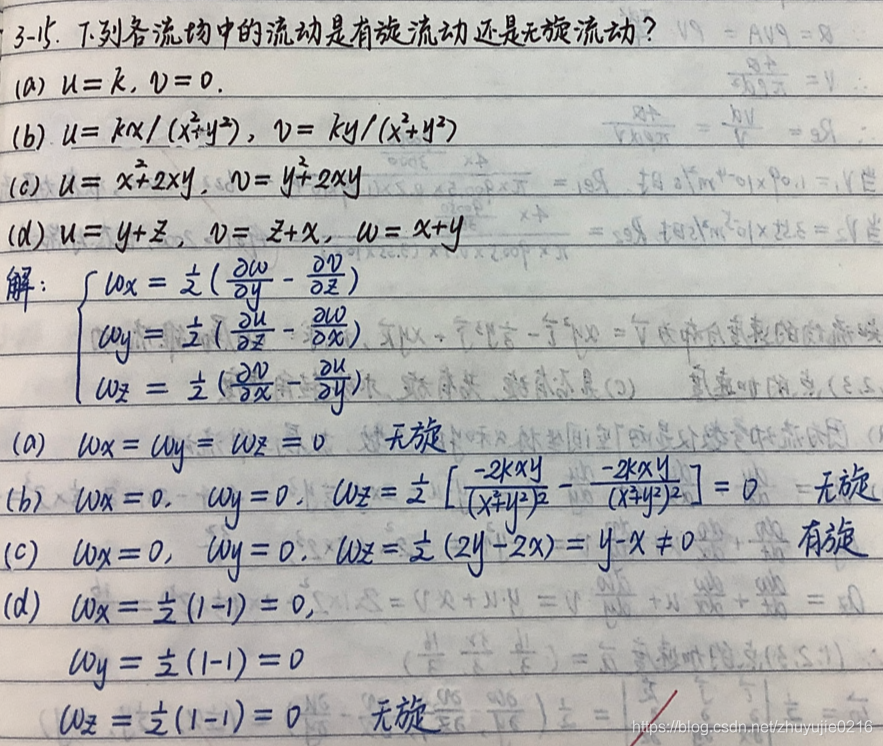 3-15. 下列各流场中的流动是有旋流动还是无旋流动?
(a) u=k, v=0.
(b) u=kx/(x²+y²), v=ky/(x²+y²)
(c) u=x²+2xy, v=y²+2xy
(d) u=y+z, v=z+x, w=x+y
解: { ωx = 1/2 (∂w/∂y - ∂v/∂z)
ωy = 1/2 (∂u/∂z - ∂w/∂x)
ωz = 1/2 (∂v/∂x - ∂u/∂y)
(a) ωx = ωy = ωz = 0 无旋
(b) ωx=0. ωy=0. ωz = 1/2 [-2kxy/(x²+y²)² - -2kxy/(x²+y²)²] = 0 无旋
(c) ωx=0, ωy=0. ωz = 1/2 (2y-2x) = y-x ≠ 0 有旋
(d) ωx = 1/2 (1-1) = 0,
ωy = 1/2 (1-1) = 0
ωz = 1/2 (1-1) = 0 无旋
https://blog.csdn.net/zhuyujie0216